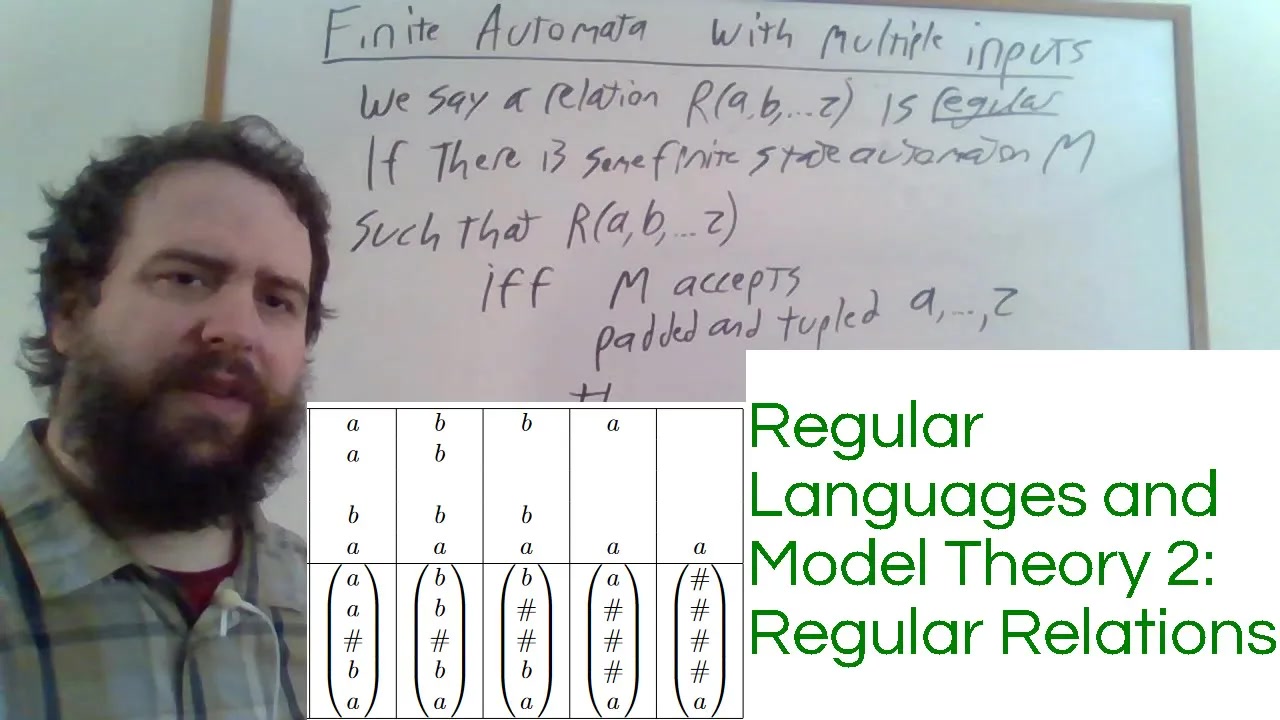 Finite Automata with multiple inputs
We say a relation R(a,b,...z) is regular
If There is some finite state automaton M
such that R(a,b,...z)
iff M accepts
padded and tupled a,...,z
#
a b b a
a b
b b b
a a a a a
a b b a #
a b # # #
# # # # #
b b b # #
a a a a a
Regular
Languages and
Model Theory 2:
Regular Relations